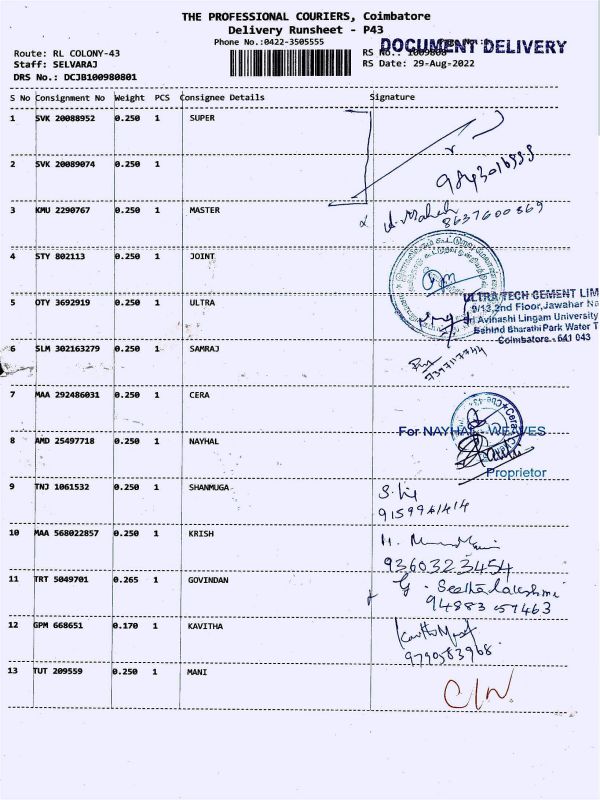 THE PROFESSIONAL COURIERS, Coimbatore
Delivery Runsheet - P43
Phone No.:0422-3505555
DOCUMENT DELIVERY
Route: RL COLONY-43
RS No.: 1009808
Staff: SELVARAJ
RS Date: 29-Aug-2022
DRS No.: DCJB100980801
S No Consignment No Weight PCS Consignee Details Signature
1 SVK 20088952 0.250 1 SUPER
2 SVK 20089074 0.250 1
3 KMU 2290767 0.250 1 MASTER
8637600869
4 STY 802113 0.250 1 JOINT
5 OTY 3692919 0.250 1 ULTRA
ULTRATECH CEMENT LIM
9/13,2nd Floor,Jawahar Na
Sri Avinashi Lingam University
Behind Bharathi Park Water T
Coimbatore - 641 043
6 SLM 302163279 0.250 1 SAMRAJ
7 MAA 292486031 0.250 1 CERA
For NAYHAL WEAVES
8 AMD 25497718 0.250 1 NAYHAL
Proprietor
9 TNJ 1061532 0.250 1 SHANMUGA
9159961414
10 MAA 568022857 0.250 1 KRISH
9360323454
11 TRT 5049701 0.265 1 GOVINDAN
G. Seethalakshmi
94883 57463
12 GPM 668651 0.170 1 KAVITHA
9790583968
13 TUT 209559 0.250 1 MANI